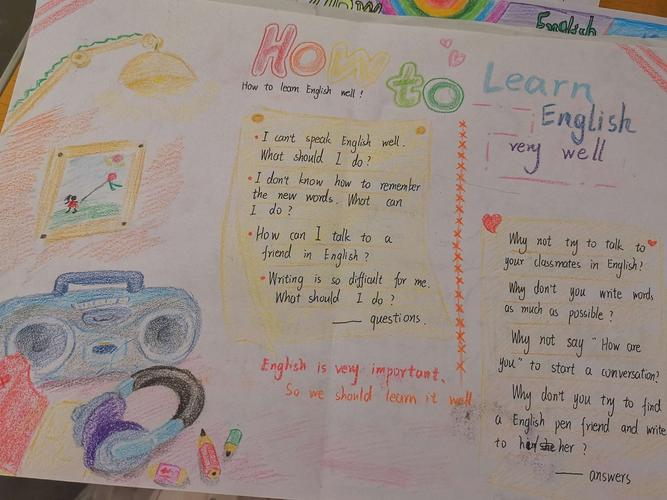 English
How to
Learn
English
very well
How to learn English well !
• I can't speak English well.
What should I do ?
• I don't know how to remember
the new words. What can
I do ?
• How can I talk to a
friend in English ?
• Writing is so difficult for me.
What should I do ?
—— questions.
English is very important.
So we should learn it well
Why not try to talk to
your classmates in English?
Why don't you write words
as much as possible ?
Why not say "How are
you" to start a conversation?
Why don't you try to find
a English pen friend and write
to her ?
—— answers